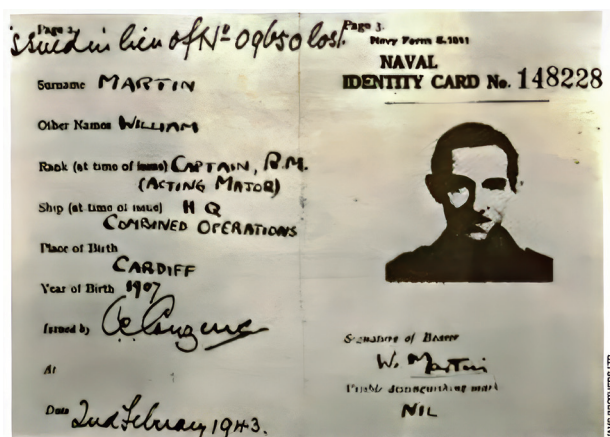 Page 2.
issued in lieu of Nº 09650 lost.
Surname MARTIN
Other Names WILLIAM
Rank (at time of issue) CAPTAIN, R.M.
(ACTING MAJOR)
Ship (at time of issue) H Q
COMBINED OPERATIONS
Place of Birth
CARDIFF
Year of Birth 1907
Issued by
At
Date 2nd February 1943.
Page 3.
Navy Form S.1511
NAVAL
IDENTITY CARD No. 148228
Signature of Bearer
W. Martin
Visible distinguishing mark
NIL